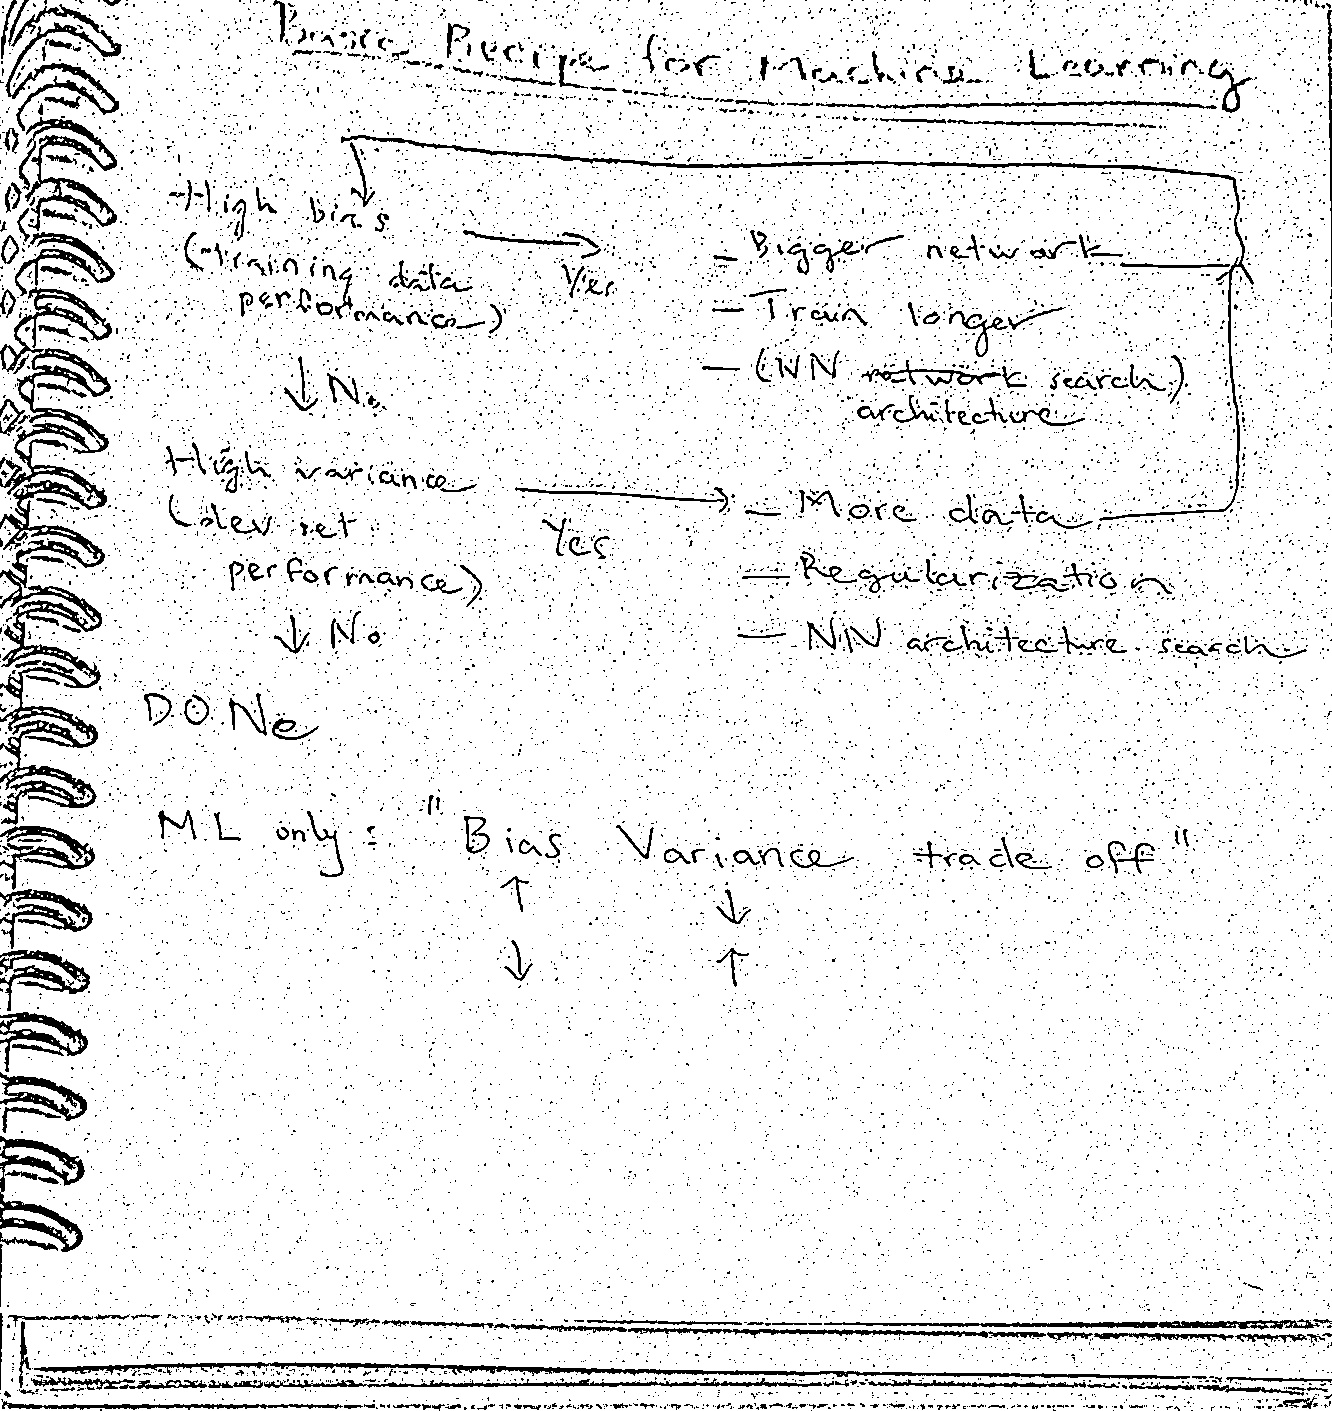 Basic Recipe for Machine Learning
High bias
(Training data
performance)
Yes
- Bigger network
- Train longer
- (NN network search)
architecture
No
High variance
(dev set
performance)
Yes
- More data
- Regularization
- NN architecture search
No
DONe
ML only: "Bias Variance trade off"